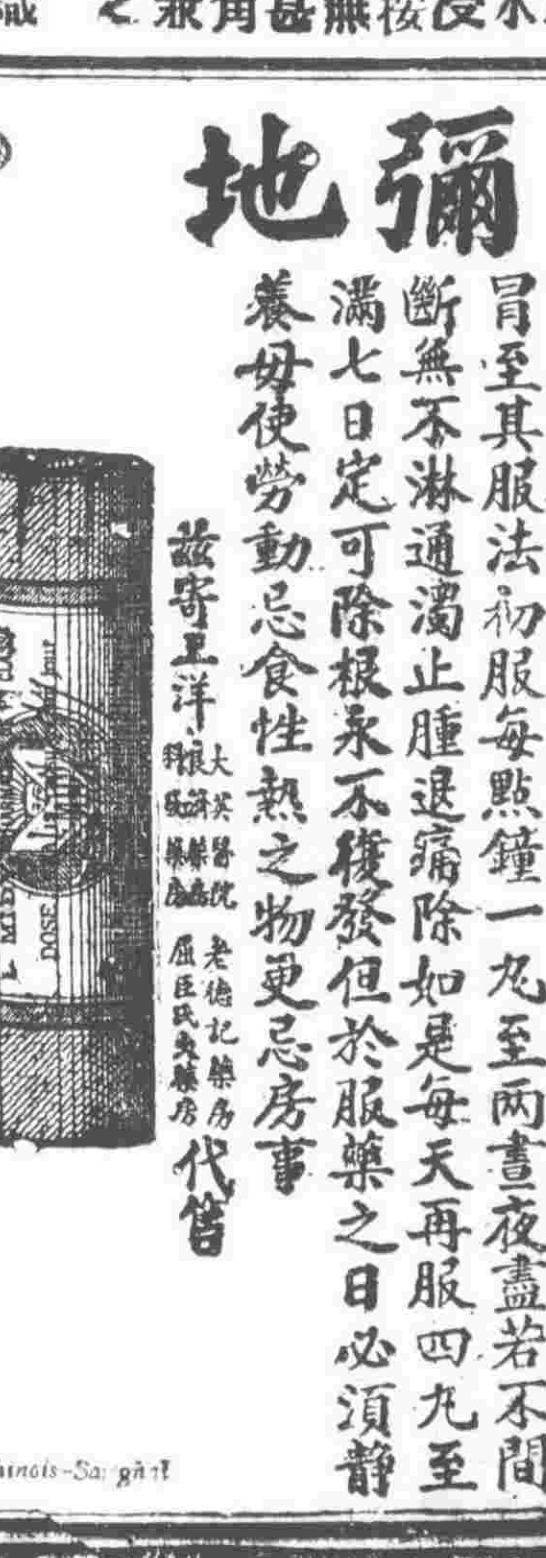 彌地
冒至其服法初服每點鐘一丸至两晝夜盡若不間
斷無不淋通濁止腫退痛除如是每天再服四丸至
滿七日定可除根永不復發但於服藥之日必須静
養毋使勞動忌食性熱之物更忌房事
茲寄上洋
大英醫院
老德記藥房
屈臣氏大藥房
代售
DOSE